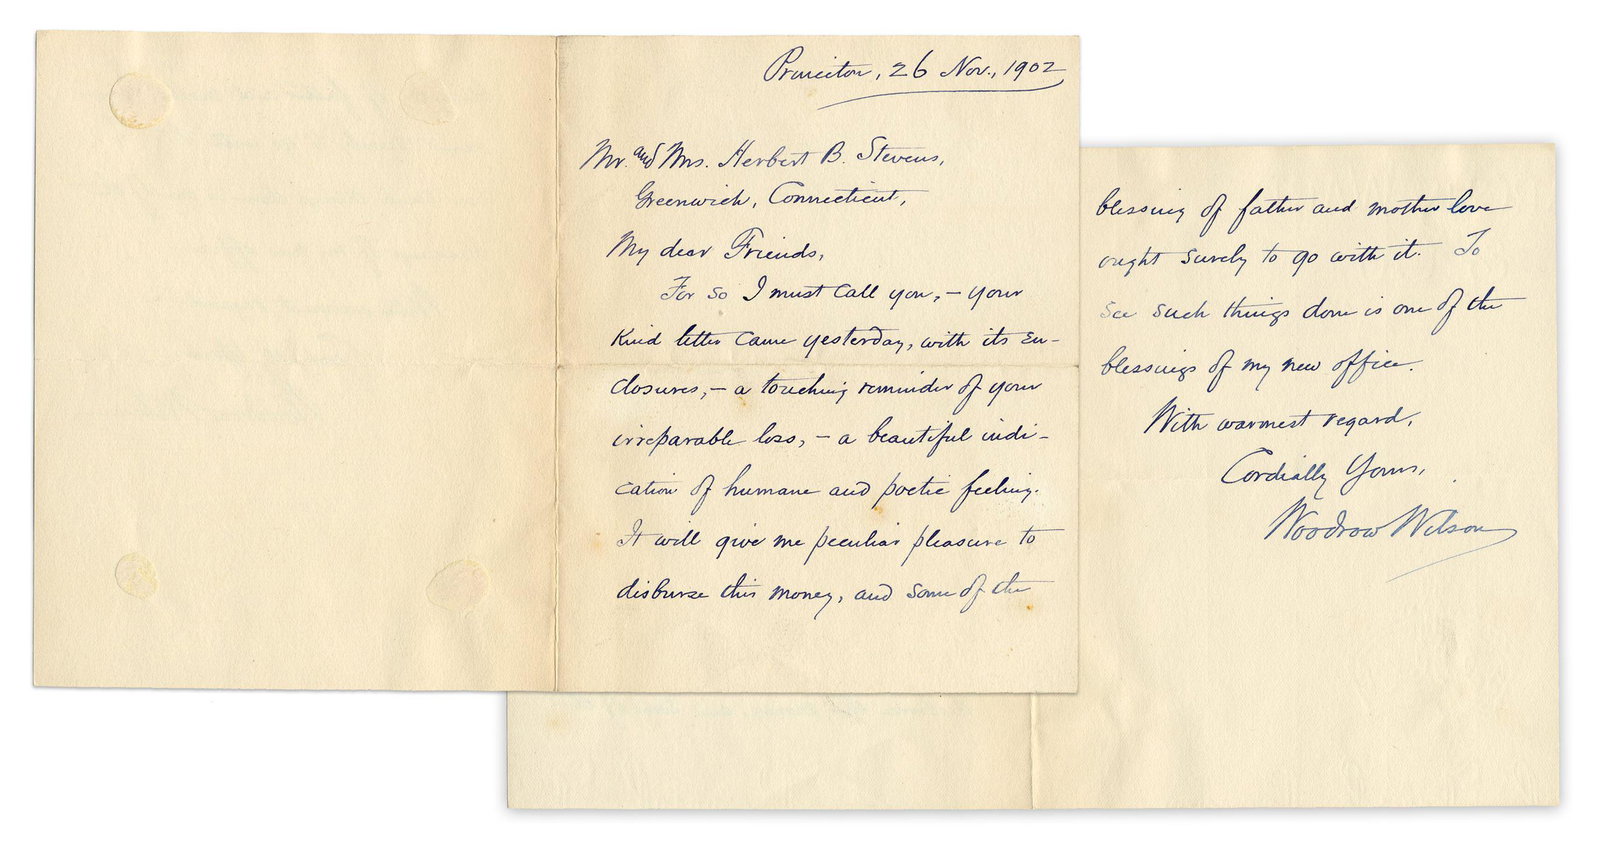 Princeton, 26 Nov., 1902
Mr. and Mrs. Herbert B. Stevens,
Greenwich, Connecticut,
My dear Friends,
For so I must call you, — your
kind letter came yesterday, with its en-
closures, — a touching reminder of your
irreparable loss, — a beautiful indi-
cation of humane and poetic feeling.
It will give me peculiar pleasure to
disburse this money, and some of the
blessing of father and mother love
ought surely to go with it. To
see such things done is one of the
blessings of my new office.
With warmest regard,
Cordially Yours,
Woodrow Wilson